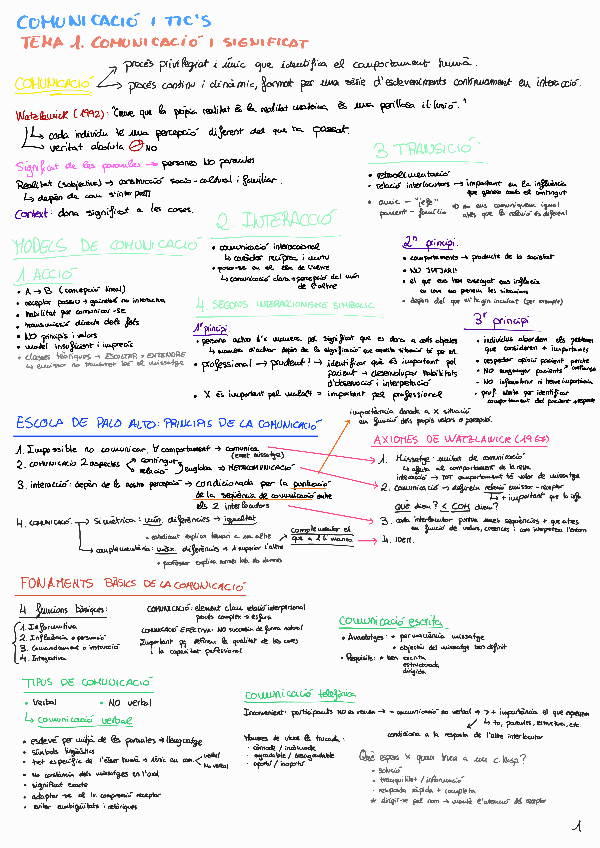 COMUNICACIÓ I TIC'S
TEMA 1. COMUNICACIÓ I SIGNIFICAT
COMUNICACIÓ
→ procés privilegiat i únic que identifica el comportament humà.
→ procés continu i dinàmic, format per una sèrie d'esdeveniments contínuament en interacció.
Watzlawick (1992): "Creure que la pròpia realitat és la realitat mateixa és una perillosa il·lusió."
↳ cada individu té una percepció diferent del que ha passat.
↳ veritat absoluta NO
Significat de les paraules → persones NO paraules
Realitat (subjectiva) → construcció socio-cultural i familiar.
↳ depèn de com s'interpreti
Context: dona significat a les coses.
MODELS DE COMUNICACIÓ
1. ACCIÓ
• A → B (concepció lineal)
• receptor passiu → gairebé no interactiva
• habilitat per comunicar-se
• transmissió directe dels fets
• NO principis i valors
• model insuficient i imprecís
• classes teòriques → ESCOLTAR ≠ ENTENDRE
↳ emissor no transmet tot el missatge
2. INTERACCIÓ
• comunicació interaccional
↳ caràcter recíproc i mutu
• posar-se en el lloc de l'altre
↳ comunicació clara → percepció del món de l'altre
3 TRANSICIÓ
• retroalimentació
• relació interlocutors → important en la influència que genera amb el contingut
• amic - "jefe"
pacient - família
→ no ens comuniquem igual atès que la relació és diferent
4. SEGONS INTERACCIONISME SIMBÒLIC
1r principi
• persona actua d'x manera pel significat que es dona a cada objecte
↳ manera d'actuar depèn de la significació que aquella situació té per ell
• professional → prudent! → identificar què és important pel pacient → desenvolupar habilitats d'observació i interpretació
• X és important pel malalt = important pel professional
2n principi
• comportaments → producte de la societat
• NO JUTJAR!
• el que ens han ensenyat ens influència en com on pensem les situacions
• depèn del que m'hagin inculcat (per exemple)
3r principi
• individus aborden els problemes que consideren + importants
• respectar opinió pacient
• NO enganyar pacients
• NO infravalorar ni treure importància
• prof. alerta per identificar comportament del pacient respecte
ESCOLA DE PALO ALTO: PRINCIPIS DE LA COMUNICACIÓ
1. Impossible no comunicar, ∀ comportament → comunica (emet missatge)
2. COMUNICACIÓ 2 aspectes
contingut
relació
engloba → METACOMUNICACIÓ
3. interacció: depèn de la nostra percepció → condicionada per la puntuació de la seqüència de comunicació entre els 2 interlocutors
4. COMUNICACIÓ
→ Simètrica: mín. diferències → igualtat
• estudiant explica temari a un altre
→ complementària: màx. diferències → 1 superior l'altre
• professor explica temari i els alumnes
complementar el que a 1 li manca
importància donada a X situació en funció dels propis valors o percepció.
AXIOMES DE WATZLAWICK (1967)
1. Missatge: unitat de comunicació
↳ afecta al comportament de la resta
interacció → TOT comportament té valor de missatge
2. comunicació → defineix relació emissor-receptor
↳ + important que la info
QUÈ diem? < COM diem?
3. cada interlocutor puntua unes seqüències + que altres en funció de valors, creences i com interpreta l'entorn
4. IDEM.
FONAMENTS BÀSICS DE LA COMUNICACIÓ
4 funcions bàsiques:
1. Informativa
2. Influència o persuasió
3. Comandament o instrucció
4. Integrativa
COMUNICACIÓ: element clau relació interpersonal
COMUNICACIÓ EFECTIVA: NO succeeix de forma natural
Important pq defineix la qualitat de les cures i la capacitat professional
comunicació escrita
• Avantatges: • permanència missatge
• objectiu del missatge ben definit
• Requisits: • ben escrita
estructurada
dirigida
TIPUS DE COMUNICACIÓ
• Verbal • NO verbal
↳ comunicació verbal
• esdevé per mitjà de les paraules → llenguatge
• símbols lingüístics
• tret específic de l'ésser humà
verbal
no verbal
• no constància dels missatges en l'oral
• significat exacte
• adaptar-se al nr. comprensió receptor
• evitar ambigüitats i retòriques
comunicació telefònica
Inconvenient: participants no es veuen → - comunicació no verbal → > + importància el que expressem
↳ to, paraules, estructura, etc.
condiciona a la resposta de l'altre interlocutor
Maneres de viure la trucada:
• còmode / incòmode
• agradable / desagradable
• oportú / inoportú
Què espera X quan truca a un c. hosp?
• solució
• tranquil·litat / informació
• resposta ràpida + completa
* dirigir-se pel nom → manté l'atenció del receptor
1